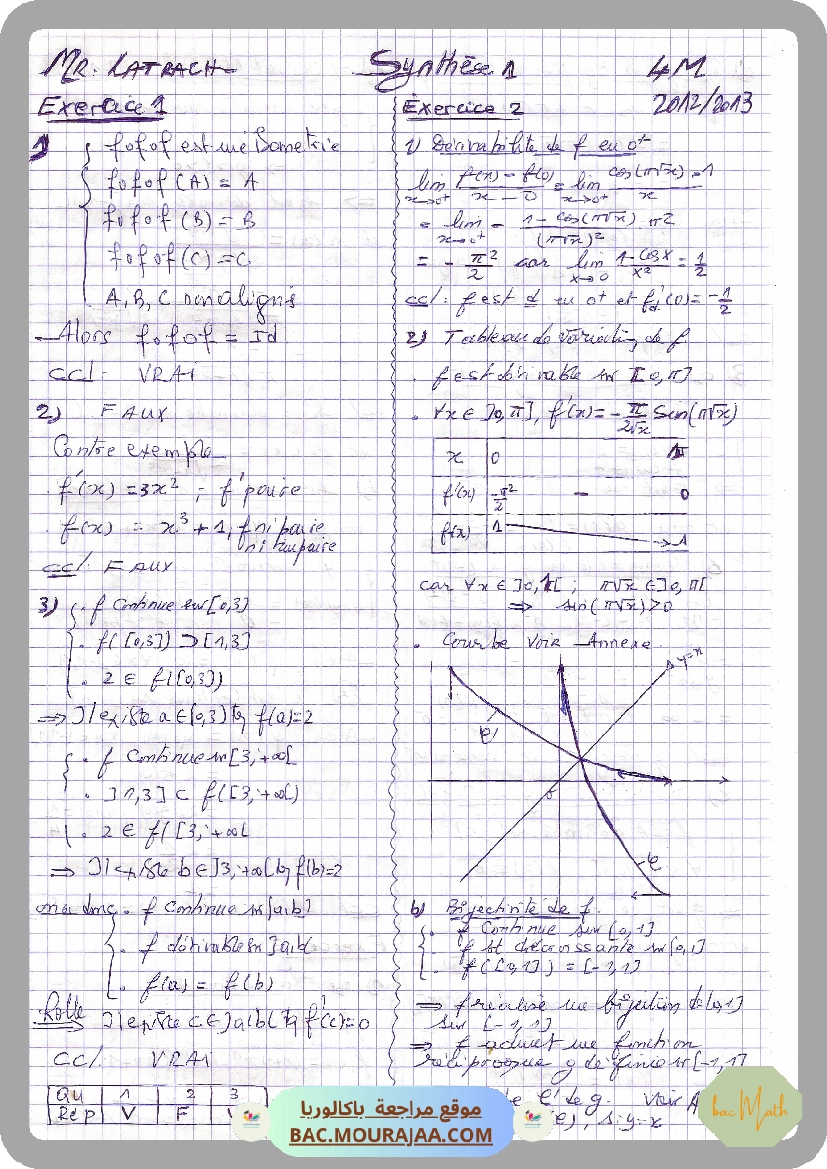 MR. LATRACH Synthèse 1 4M
2012/2013
Exercice 1
1) fofof est une isometrie
fofof (A) = A
fofof (B) = B
fofof (C) = C
A, B, C non alignés
Alors fofof = Id
ccl: VRAI
2) FAUX
Contre exemple
f'(x) = 3x² ; f' paire
f(x) = x³ + 1, f ni paire
ni impaire
ccl: FAUX
3) . f Continue sur [0,3]
. f([0,3]) ⊃ [1,3]
. 2 ∈ f([0,3])
=> Il existe a ∈ [0,3] tq f(a)=2
. f Continue sur [3,+∞[
. ]1,3] ⊂ f([3,+∞[)
. 2 ∈ f([3,+∞[
=> Il existe b ∈ ]3,+∞[ tq f(b)=2
on a donc . f Continue sur [a,b]
. f dérivable sur ]a,b[
. f(a) = f(b)
Rolle => Il existe c ∈ ]a,b[ tq f'(c)=0
ccl. VRAI
Qu 1 2 3
Rep V F V
Exercice 2
1) Dérivabilité de f en 0+
lim x→0+ f(x) - f(0) / x - 0 = lim x→0+ cos(π√x) - 1 / x
= lim x→0+ - 1 - cos(π√x) / (π√x)² π²
= - π²/2 car lim x→0 1 - cos x / x² = 1/2
ccl: f est d en 0+ et f'd(0) = -1/2
2) Tableau de variation de f
. f est dérivable sur [0,π]
. ∀x ∈ ]0,π], f'(x) = - π/2√x Sin(π√x)
x 0 1
f'(x) -π²/2 - 0
f(x) 1 -1
car ∀x ∈ ]0,1[ ; π√x ∈ ]0,π[
=> sin(π√x) > 0
. Courbe Voir Annexe
y=x
C'
0
C
b) Bijectivité de f.
. f Continue sur [0,1]
. f st décroissante sur [0,1]
. f([0,1]) = [-1,1]
=> f réalise une bijection de [0,1]
sur [-1,1]
=> f admet une fonction
réciproque g définie sur [-1,1]
C' de g. Voir A
), S: y=x
موقع مراجعة باكالوريا
BAC.MOURAJAA.COM
bac Math